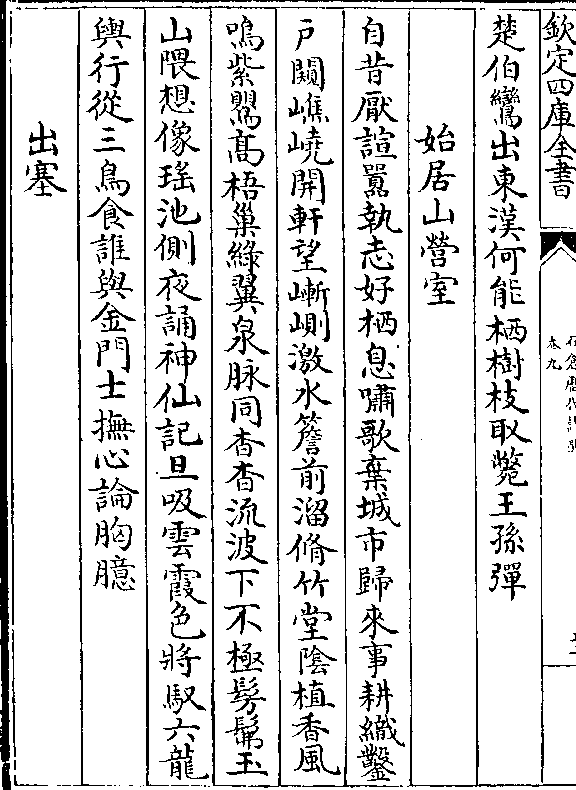 欽定四庫全書
卷九
楚伯鸞出東漢何能栖樹枝取斃王孫彈
始居山營室
自昔厭諠囂執志好栖息嘯歌棄城市歸來事耕織鑿
戸闚嶕嶢開軒望嶃崱激水簷前溜脩竹堂陰植香風
鳴紫鸎髙梧巢綠翼泉脉同杳杳流波下不極髣髴玉
山隈想像瑤池側夜誦神仙記旦吸雲霞色將馭六龍
輿行從三鳥食誰與金門士撫心論胸臆
出塞